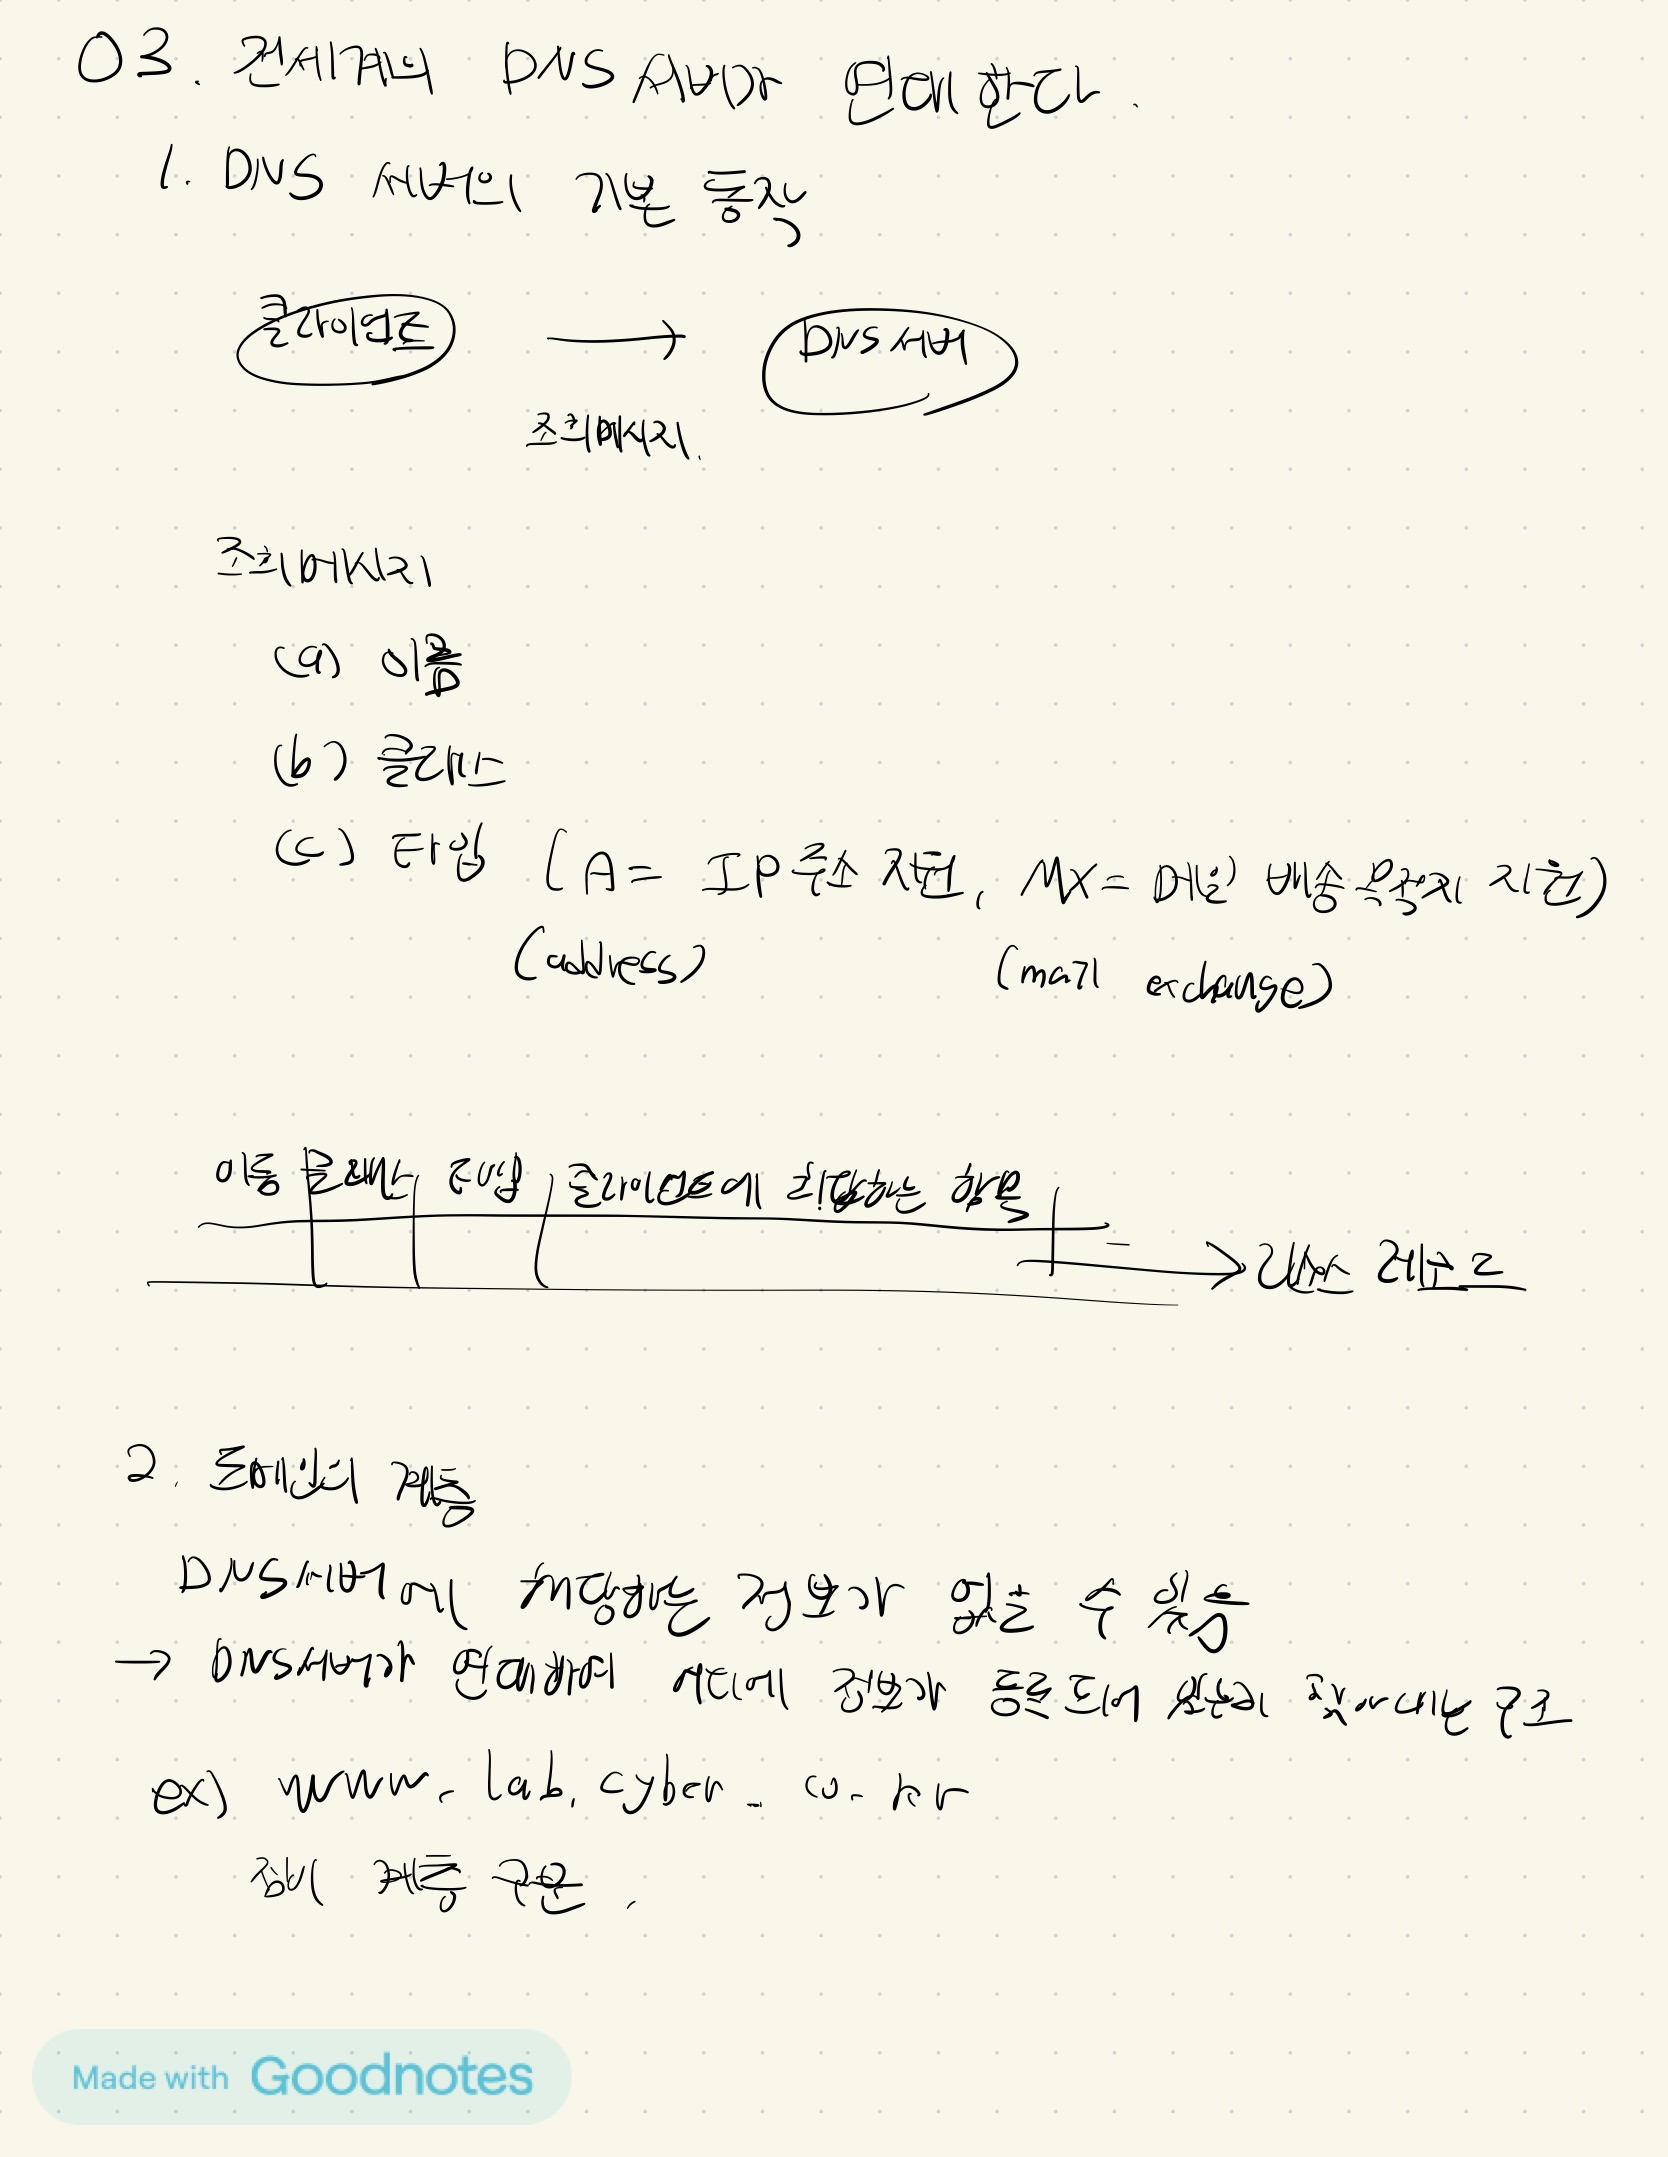 03. 전세계의 DNS 서버가 연대한다.
1. DNS 서버의 기본 동작
클라이언트 → DNS 서버
조회메시지.
조회메시지
(a) 이름
(b) 클래스
(c) 타입 (A = IP 주소 지원, MX = 메일 배송 목적지 지원)
(address) (mail exchange)
이름 클래스 타입 클라이언트에 회답하는 항목
→ 리소스 레코드
2. 도메인의 계층
DNS 서버에 해당하는 정보가 없을 수 있음
→ DNS서버가 연대하여 어디에 정보가 등록되어 있는지 찾아내는 구조
ex) www.lab.cyber.co.kr
점이 계층 구분.
Made with Goodnotes